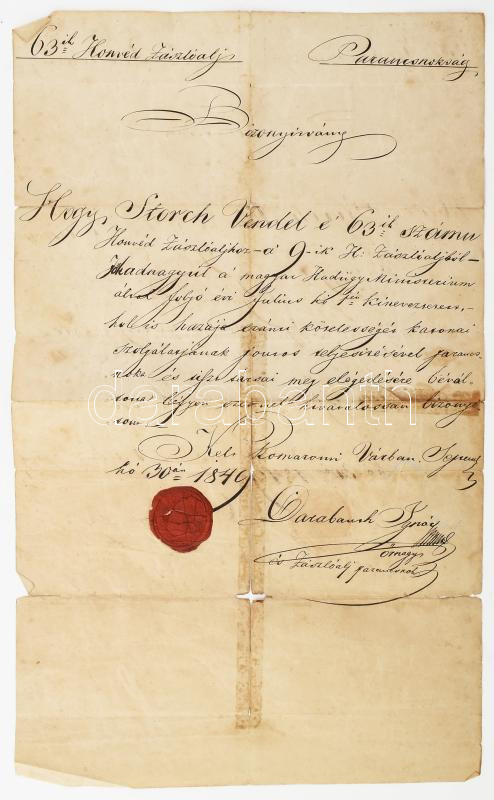 63ik Honvéd Zászlóalj Parancsnokság
Bizonyitvány
Hogy Storch Vendel é 63ik számu
Honvéd Zászlóaljhoz a 9-ik H. Zászlóaljból
hadnagyúl a magyar Hadügy Ministerium
által folyó évi Julius hó kinevezett
hazája iránti kötelességét katonai
szolgálatjának pontos teljesitésével parancs-
és tiszt társai meg elégedésére bévál-
légyen ezennel hivatalossan bizonyi-
tom
Kelt Komáromi Várban, Septemb
hó 30án 1849
Darabanth Ignác
őrnagy
és Zászlóalj parancsnok
darabanth